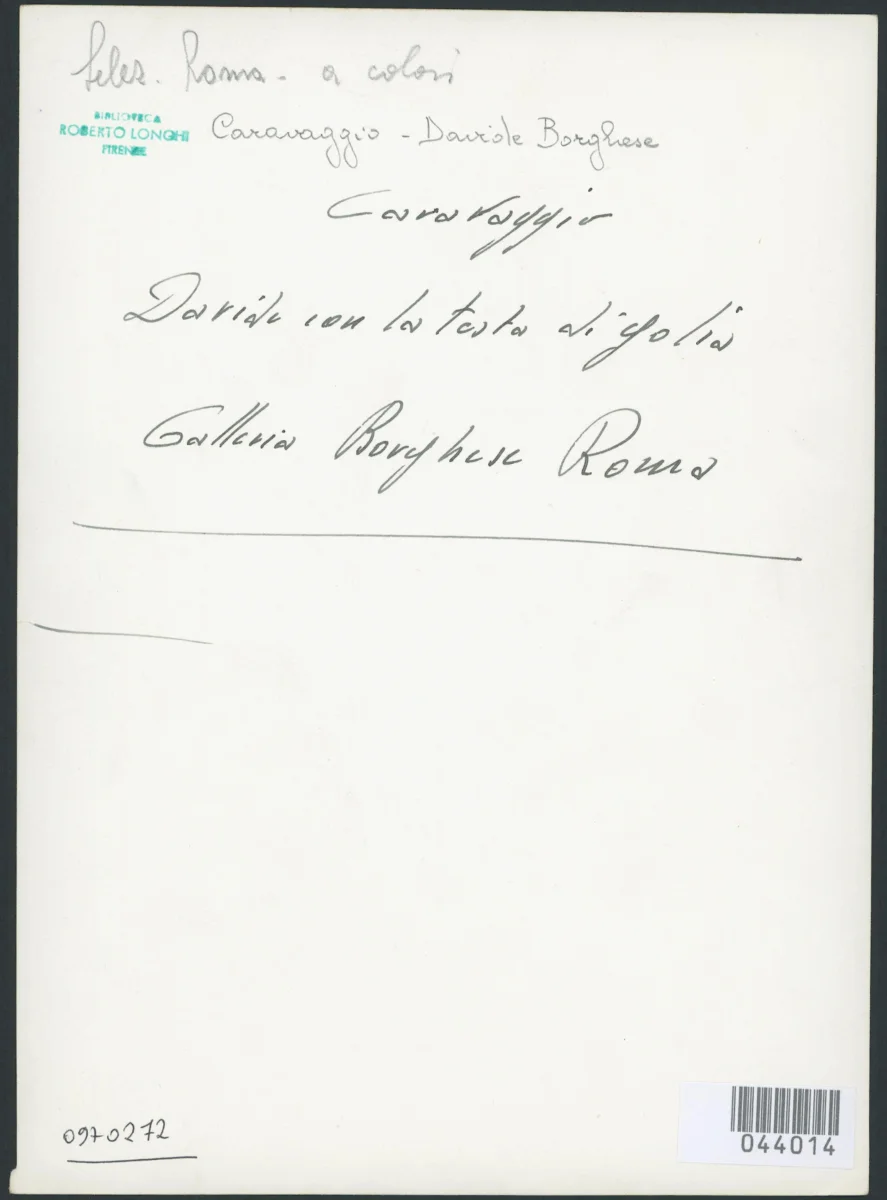 Selez. Roma - a colori
BIBLIOTECA
ROBERTO LONGHI
FIRENZE
Caravaggio - Davide Borghese
Caravaggio
Davide con la testa di Golia
Galleria Borghese Roma
0970272
044014